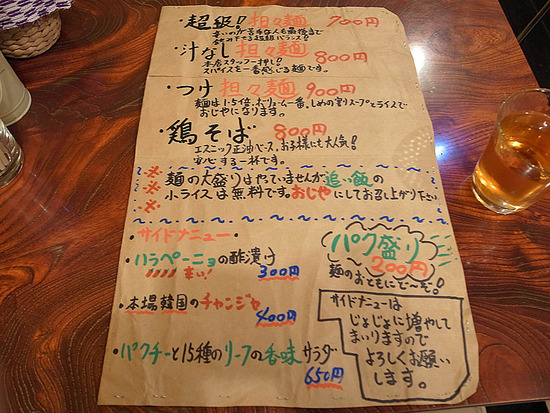 ・超級!担々麺 700円
辛いのが苦手な人も最後まで
飲みほせる超級バランス!
・汁なし担々麺 800円
本店スタッフ一押し!
スパイスを一番感じる麺です。
・つけ担々麺 900円
麺は1.5倍、ボリューム一番、しめの割りスープとライスで
おじやになります。
・鶏そば 800円
エスニック正油ベース、お子様にも大人気!
安心する一杯です。
麺の大盛りはやっていませんが追い飯の
小ライスは無料です。おじやにしてお召し上がり下さい
・サイドメニュー・
・ハラペーニョの酢漬け
辛い! 300円
・本場韓国のチャンジャ
400円
・パクチーと15種のリーフの香味サラダ
650円
パク盛り
200円
麺のおともにど〜ぞ!
サイドメニューは
じょじょに増やして
まいりますので
よろしくお願い
します。